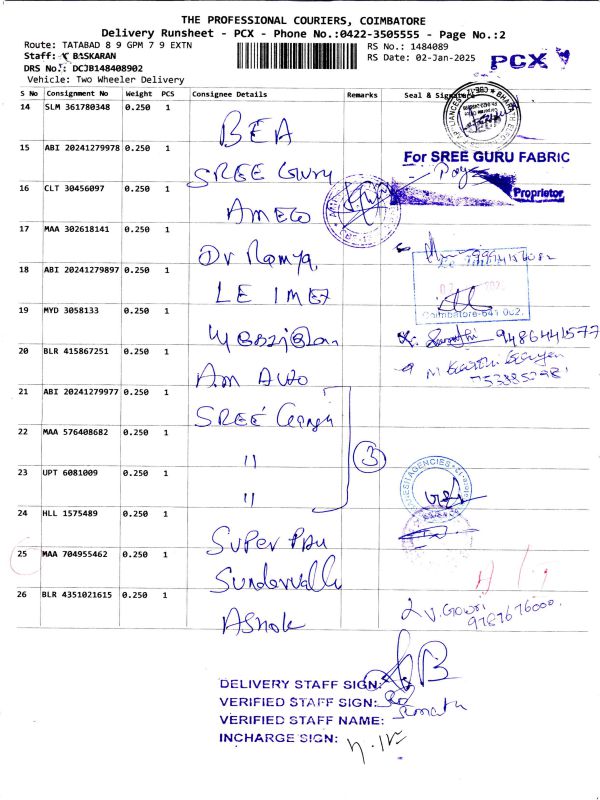 THE PROFESSIONAL COURIERS, COIMBATORE
Delivery Runsheet - PCX - Phone No.:0422-3505555 - Page No.:2
Route: TATABAD 8 9 GPM 7 9 EXTN
RS No.: 1484089
Staff: K BASKARAN
RS Date: 02-Jan-2025
PCX
DRS No.: DCJB148408902
Vehicle: Two Wheeler Delivery
S No Consignment No Weight PCS Consignee Details Remarks Seal & Signature
14 SLM 361780348 0.250 1 BEA
15 ABI 20241279978 0.250 1 SREE Guru
For SREE GURU FABRIC
Proprietor
16 CLT 30456097 0.250 1 AMECO
17 MAA 302618141 0.250 1 Dr Ramya
18 ABI 20241279897 0.250 1 LE IMEX
Coimbatore-641 002.
19 MYD 3058133 0.250 1 9486441577
20 BLR 415867251 0.250 1 Am Auto
21 ABI 20241279977 0.250 1 SREE Ganga
22 MAA 576408682 0.250 1 "
3
23 UPT 6081009 0.250 1 "
24 HLL 1575489 0.250 1 Super
25 MAA 704955462 0.250 1 Sundervalli
26 BLR 4351021615 0.250 1 Ashok
V. Gowri
9787676000.
DELIVERY STAFF SIGN:
VERIFIED STAFF SIGN:
VERIFIED STAFF NAME:
INCHARGE SIGN: